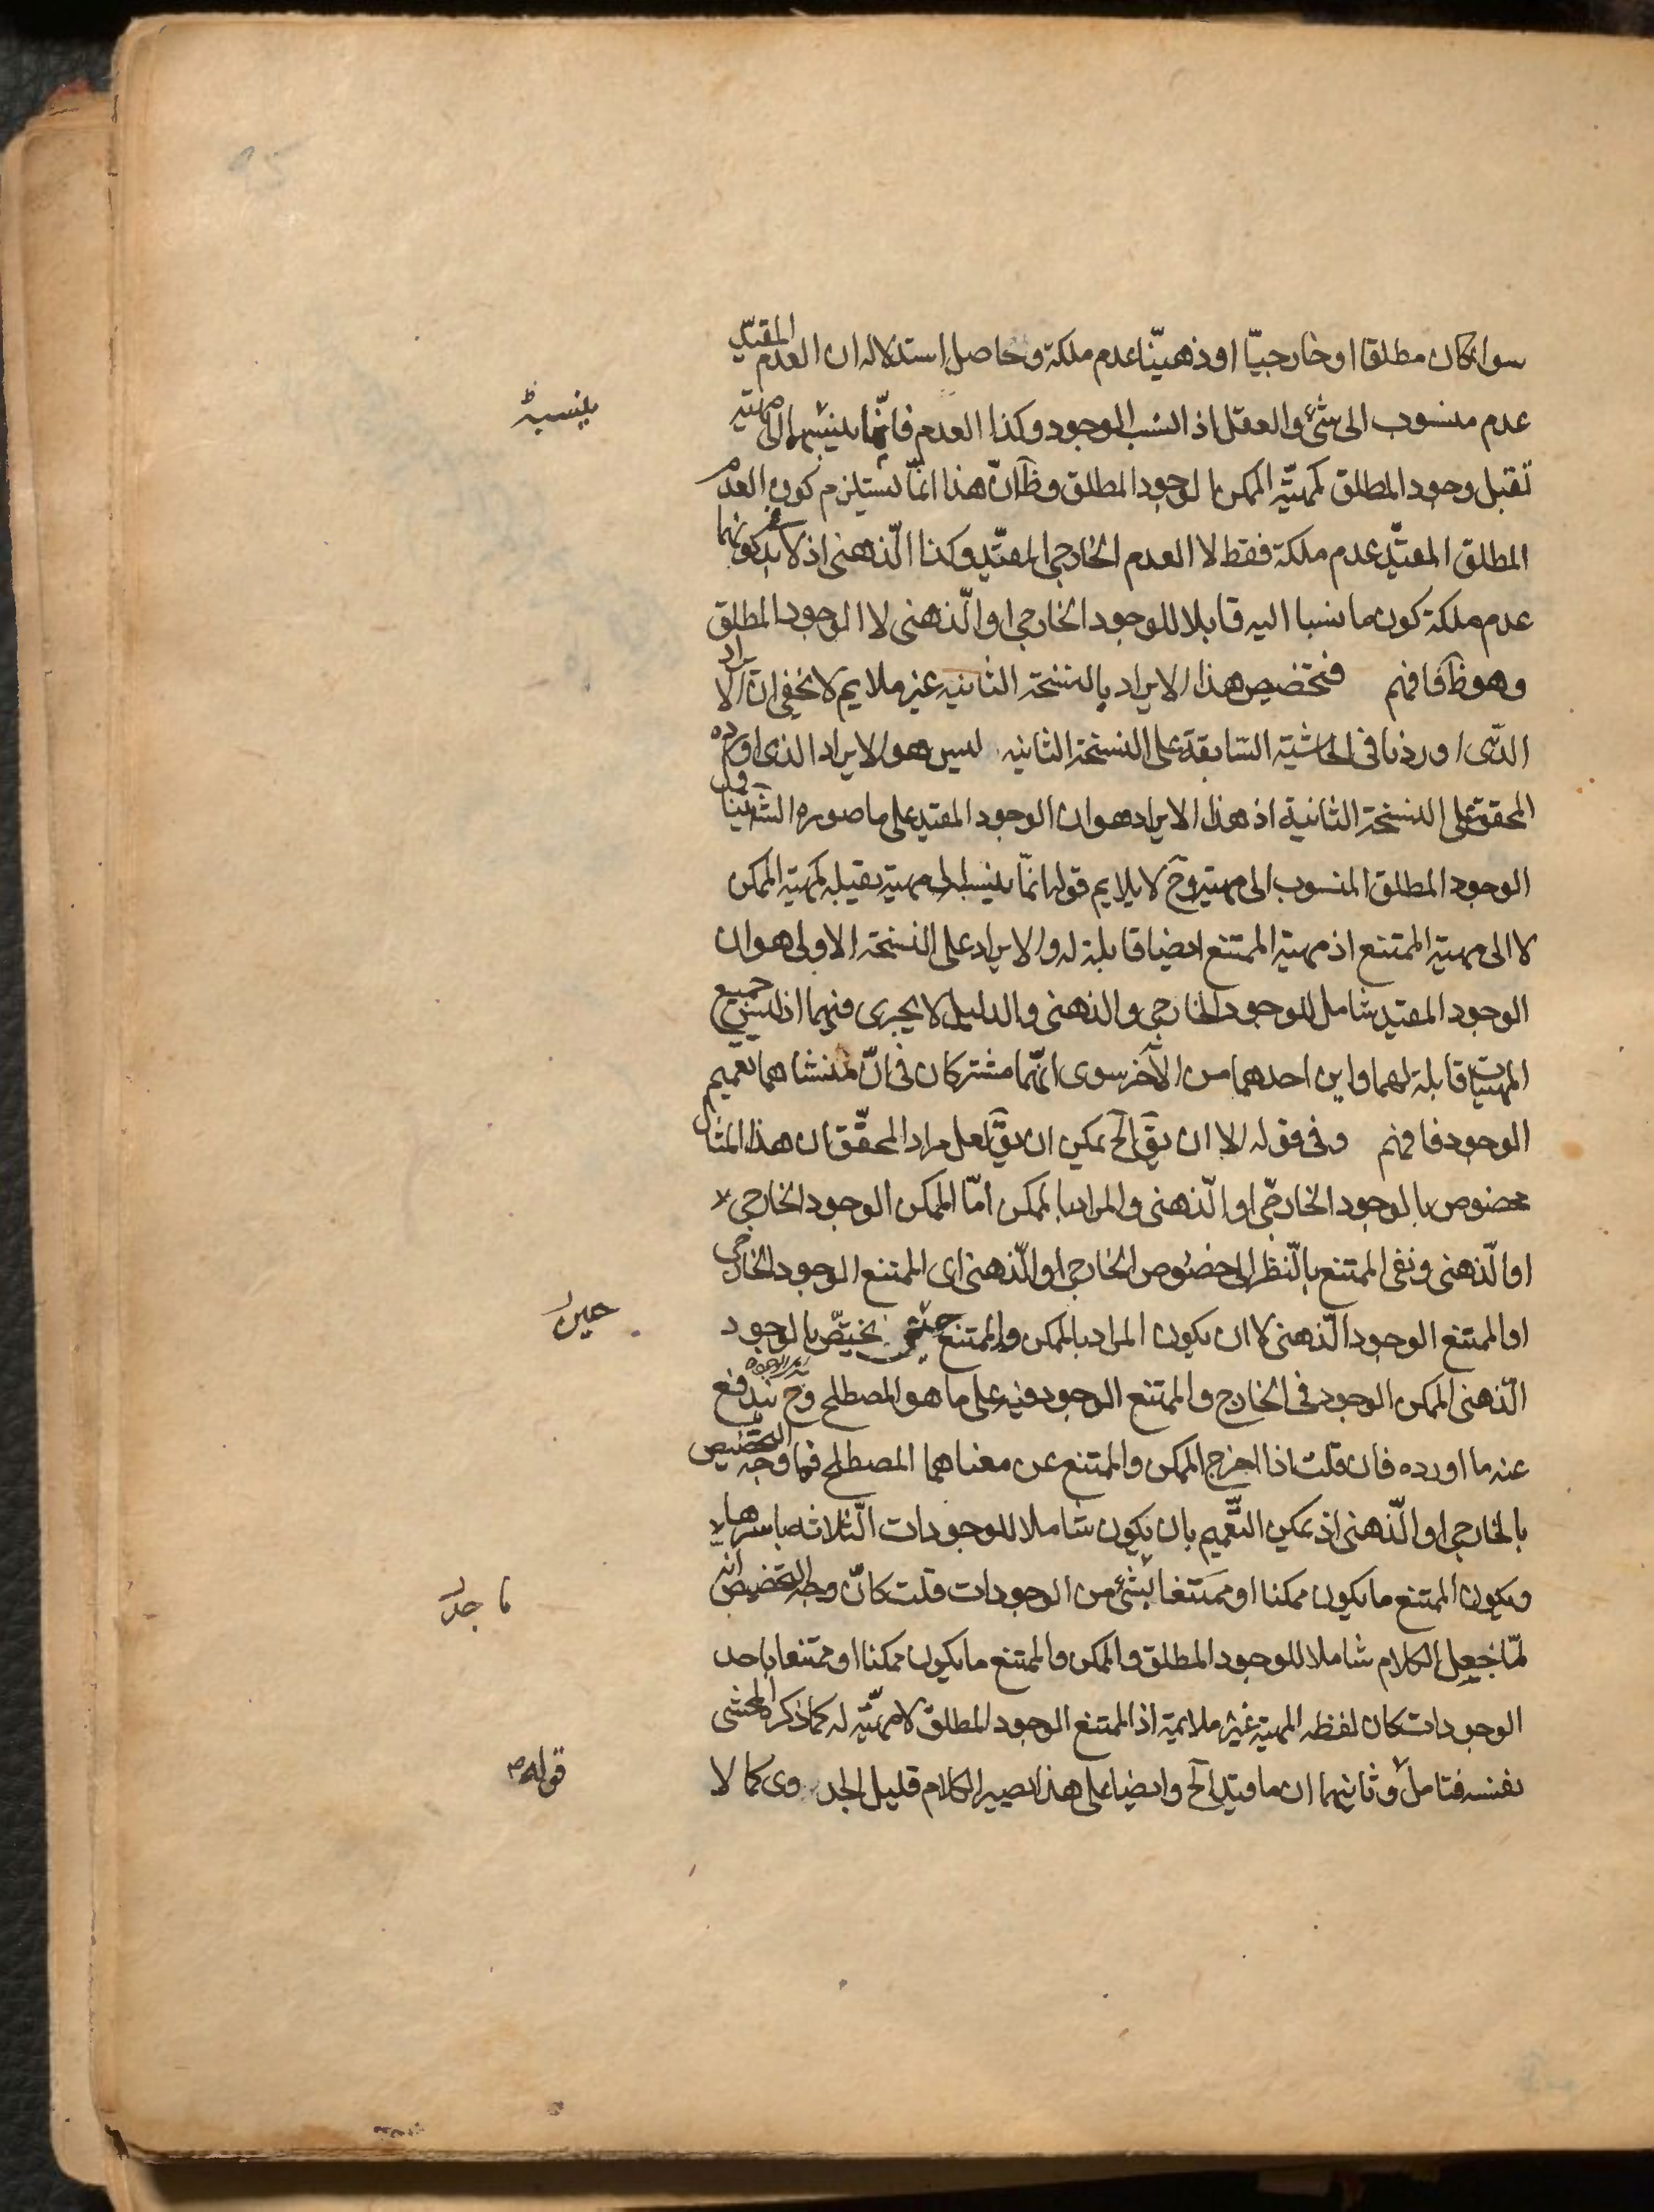 سواء كان مطلقا او خارجيّا او ذهنيّا عدم ملكة وحاصل استدلاله ان العدم المقيّد
عدم منسوب الى شئ والعقل اذا انسب الوجود وكذا العدم فانّما ينسبهما الى مهيّة
ينسبه
تقبل وجود المطلق كمهيّة الممكن بالوجود المطلق وظ انّ هذا انّما يستلزم كون العدم
المطلق المقيّد عدم ملكة فقط لا العدم الخارجي المقيّد وكذا الّذهنى اذ لا بد كونهما
عدم ملكة كون ما نسبا اليه قابلا للوجود الخارجي او الّذهنى لا الوجود المطلق
وهو ظ فافهم فتخصيص هذا الايراد بالنسخة الثانيه غير ملايم لا يخفى ان الايراد
الذى اوردنا فى الحاشية السّابقة على النسخة الثانيه ليس هو الايراد الذى اورده
المحقق على النسخة الثانية اذ هذا الايراد هو ان الوجود المقيد على ما صوره الش يتناول
الوجود المطلق المنسوب الى مهية وح لا يلايم قوله انّما ينسب الى مهية تقبله كمهية الممكن
لا الى مهية الممتنع اذ مهية الممتنع ايضا قابلة له والايراد على النسخة الاولى هو ان
الوجود المقيد شامل للوجود الخارجي والذهنى والدليل لا يجرى فيهما اذ ليس جميع
المهيات قابلة لهما واين احدهما من الآخر سوى انّهما مشتركان فى انّ منشاهما تعميم
الوجود فافهم وفى قوله الا ان يقّ الخ يمكن ان يقّ لعل مراد المحقّق ان هذا المثال
مخصوص بالوجود الخارجّى او الّذهنى والمراد بالممكن امّا الممكن الوجود الخارجي
او الّذهنى ونفى الممتنع بالّنظر الى خصوص الخارجي او الّذهنى اى الممتنع الوجود الخارجى
او الممتنع الوجود الّذهنى لا ان يكون المراد بالممكن والممتنع يختصّ بالوجود
حين
الّذهنى الممكن الوجود فى الخارج والممتنع الوجود فيه على ما هو المصطلح وح يندفع
عنه ما اورده فان قلت اذا اخرج الممكن والممتنع عن معناهما المصطلح فما وجه التخصيص
بالخارجي او الّذهنى اذ يمكن التّعميم بان يكون شاملا للوجودات الّثلاثه باسرها
ويكون الممتنع ما يكون ممكنا او ممتنعا بشئ من الوجودات قلت كانّ وجه التخصيص انه
ما جد
لمّا جعل الكلام شاملا للوجود المطلق والممكن والممتنع ما يكون ممكنا او ممتنعا باحد
الوجودات كان لفظه المهية غير ملايمة اذ الممتنع الوجود المطلق لا مهيّة له كما ذكره المحشى
نفسه فتامل وثانيهما ان ما قيد الخ وايضا على هذا يصير الكلام قليل الجدوى كما لا
قوله